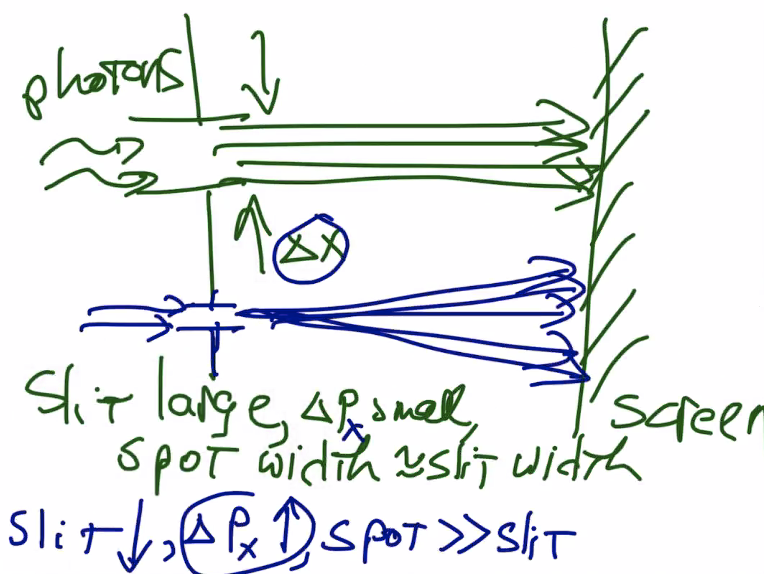 photons
Δx
Slit large, ΔPx small,
screen
spot width ≈ slit width
Slit ↓, ΔPx ↑, spot >> slit